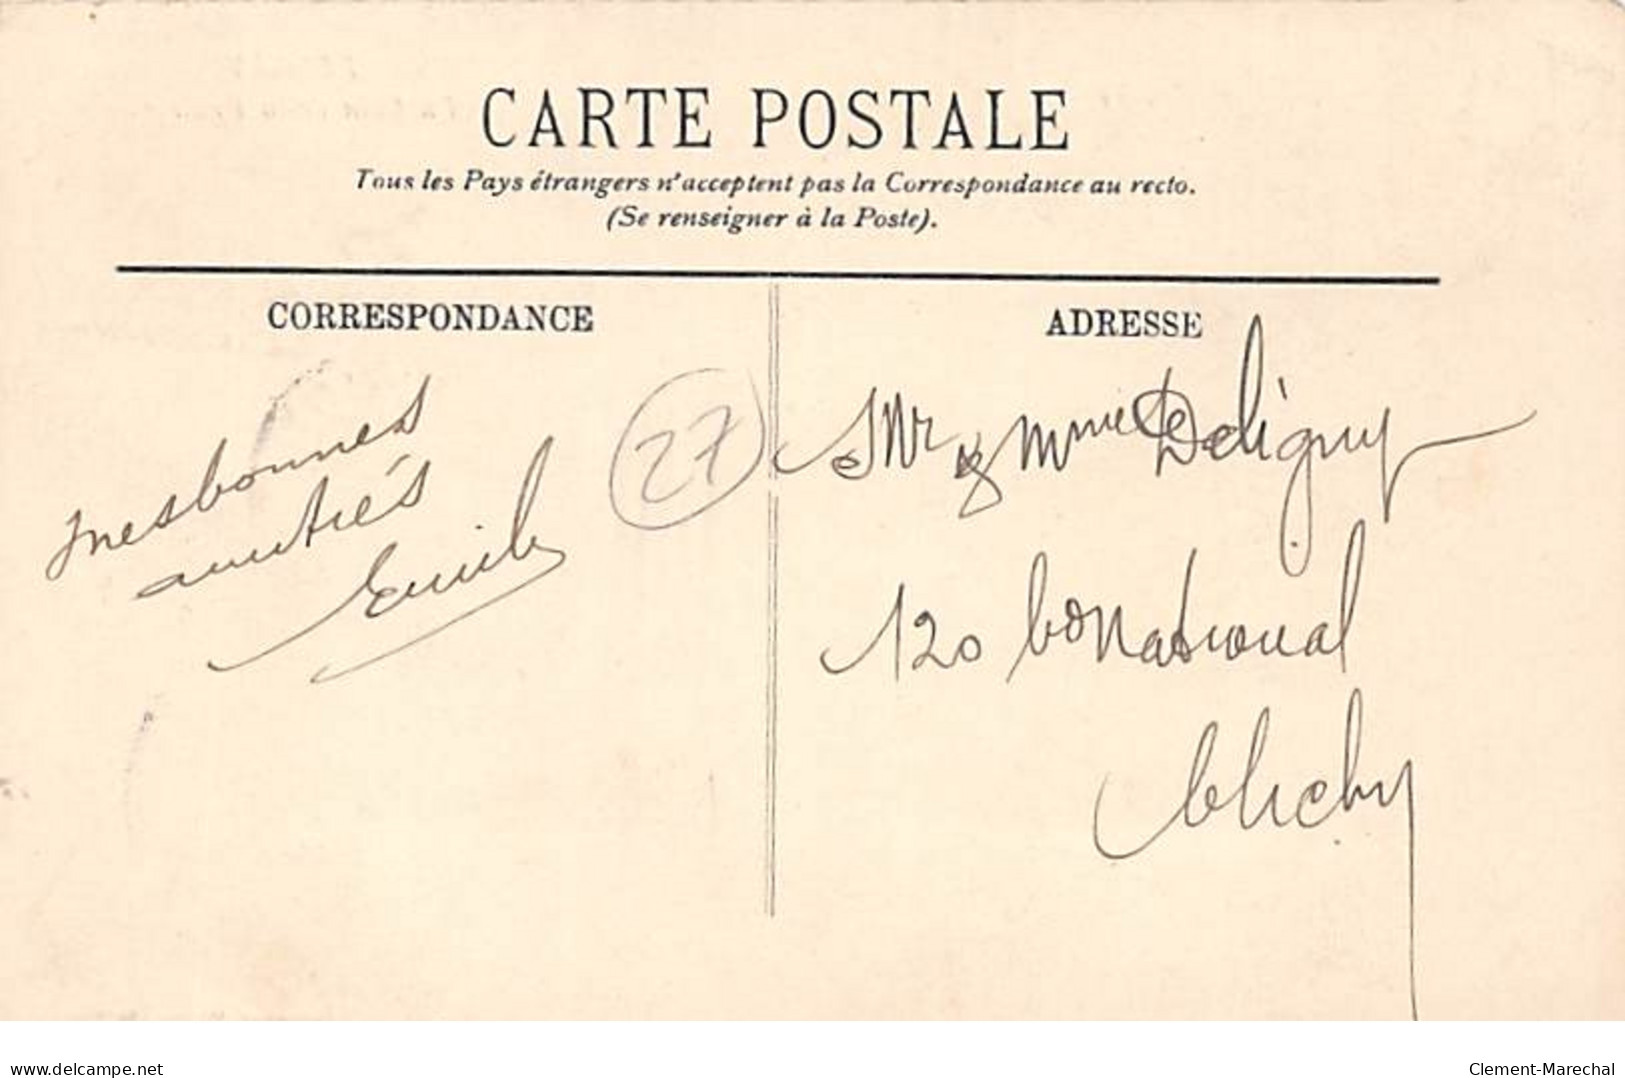 CARTE POSTALE
Tous les Pays étrangers n'acceptent pas la Correspondance au recto.
(Se renseigner à la Poste).
CORRESPONDANCE
mes bonnes
amitiés
Emile
27
ADRESSE
Mr & Mme Deligny
120 bd National
Clichy
www.delcampe.net
Clement-Marechal